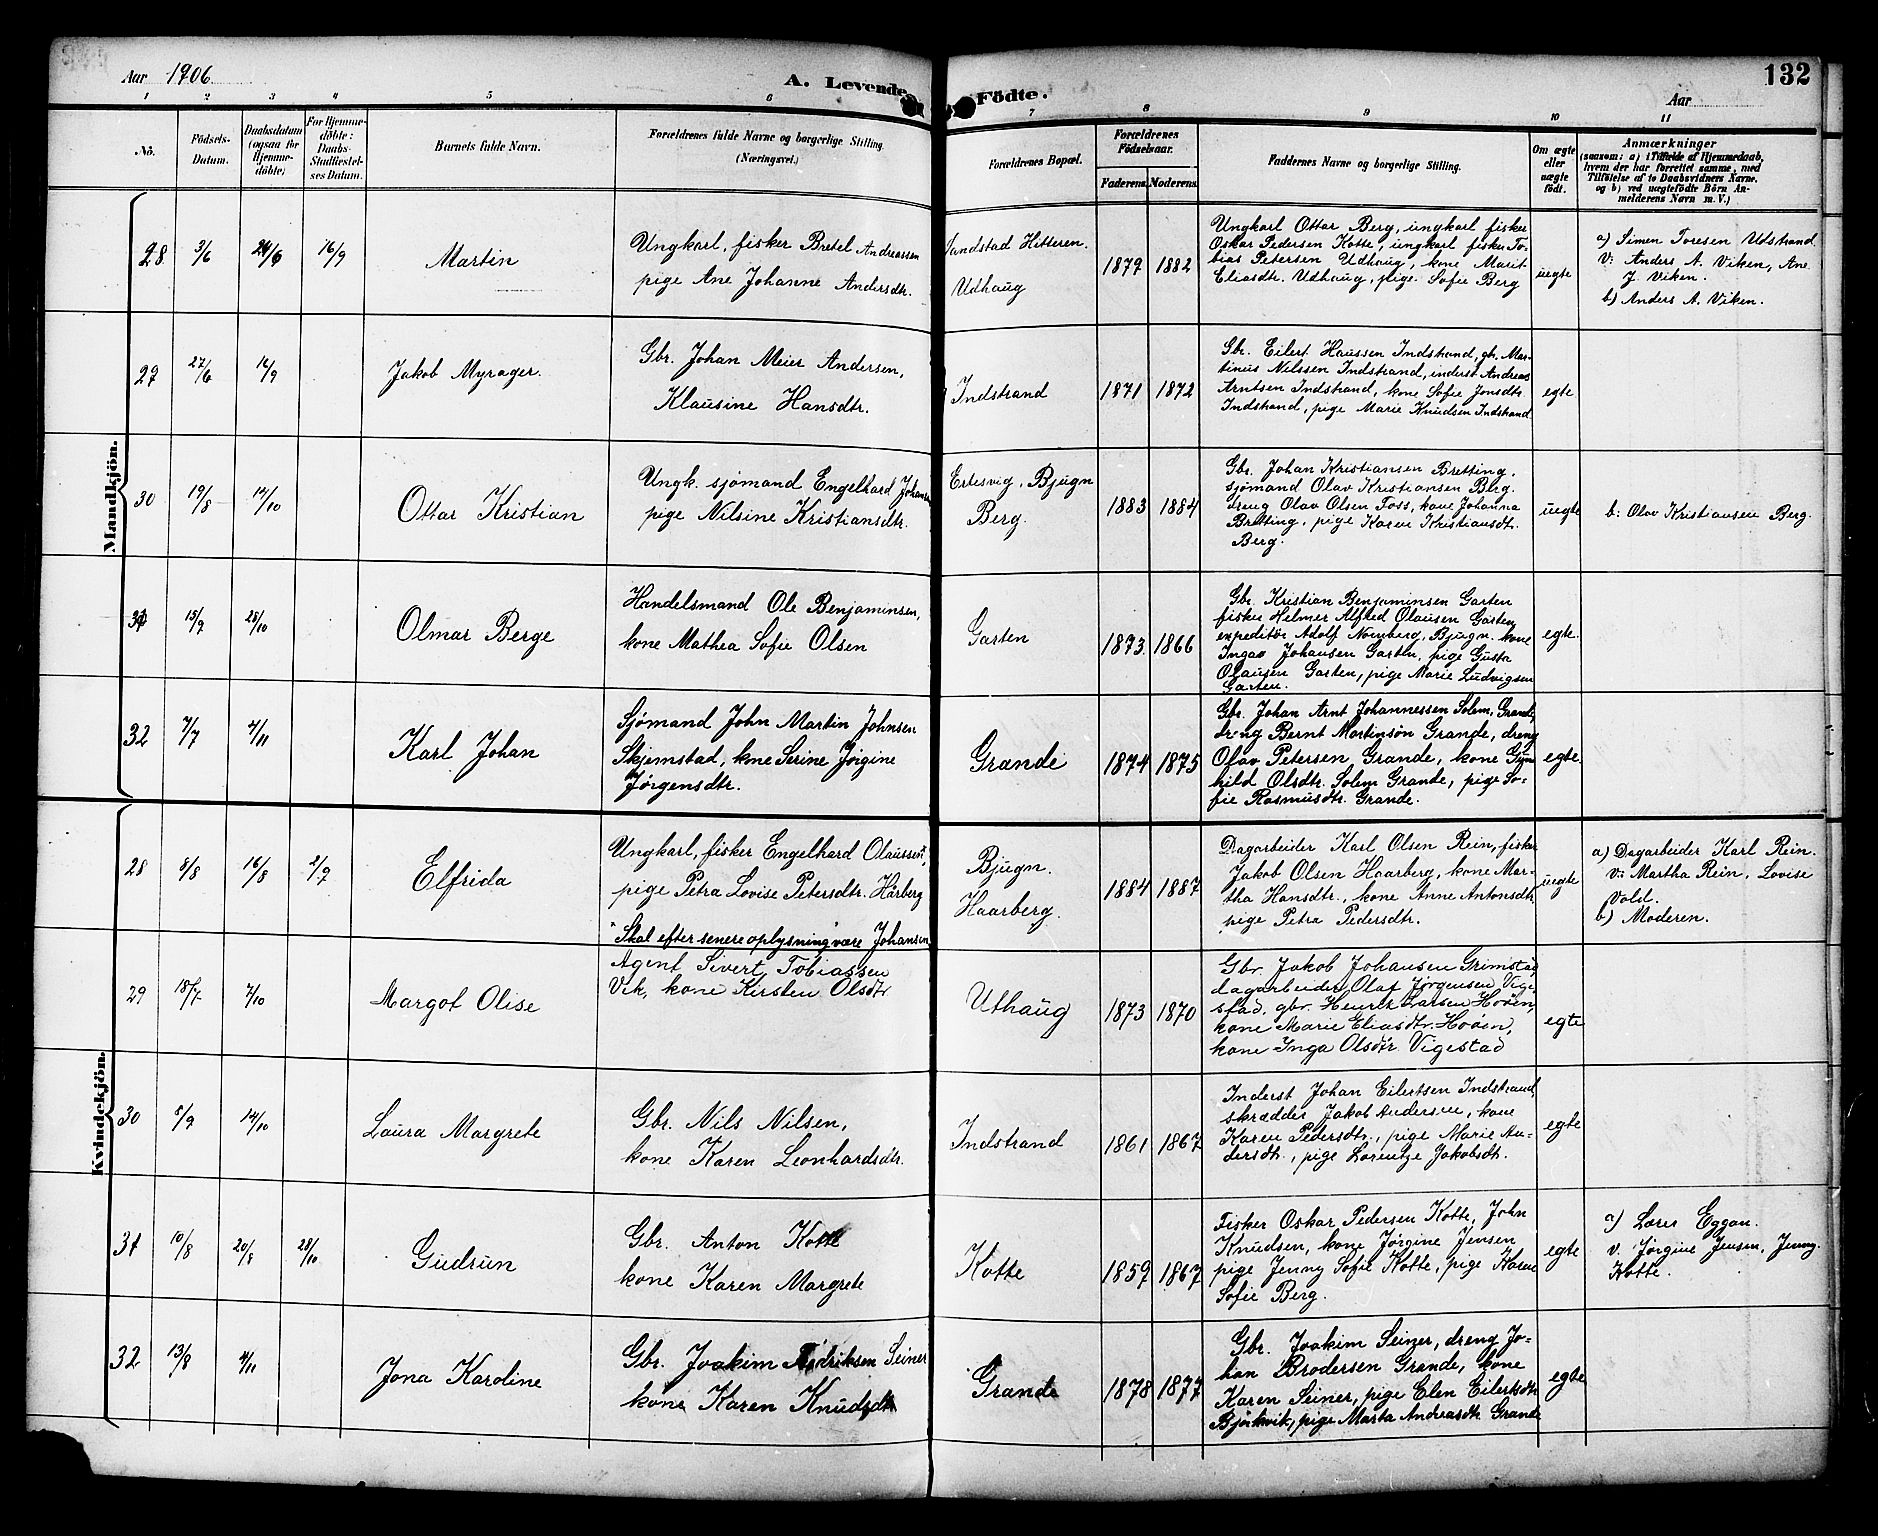 Aar 1906.
A. Levende Födte.
Aar
132
1 2 3 4 5 6 7 8 9 10 11
No.
Födsels-
Datum.
Daabsdatum
(ogsaa for
Hjemme-
döbte)
For Hjemme-
döbte:
Daabs-
Stadfæstel-
ses Datum.
Barnets fulde Navn.
Forældrenes fulde Navne og borgerlige Stilling.
(Næringsvei.)
Forældrenes Bopæl.
Forældrenes
Födselsaar.
Faderens. Moderens.
Faddernes Navne og borgerlige Stilling.
Om ægte
eller
uægte
födt.
Anmærkninger
(saasom: a) i Tilfælde af Hjemmedaab,
hvem der har forrettet samme, med
Tilföielse af to Daabsvidners Navne,
og b) ved uægtefödte Börn An-
melderens Navn m. V.)
Mandkjön.
28 3/6 24/6 16/9
Martin
Ungkarl, fisker Bretel Andreassen
pige Ane Johanne Andersdtr.
Sandstad Hitteren.
Udhaug
1879 1882
Ungkarl Ottar Berg, ungkarl fisker
Oskar Pedersen Kotte, ungkarl fisker To-
bias Petersen Udhaug, kone Marit
Eliasdtr. Udhaug, pige Sofie Berg
uegte
a) Simen Toresen Udstrand
V: Anders A. Viken, Ane
J. Viken.
b) Anders A. Viken.
29 27/6 16/9
Jakob Myrager.
Gbr. Johan Meier Andersen,
Klausine Hansdtr.
Indstrand
1871 1872
Gbr. Eilert Hanssen Indstrand, gbr. Mar-
tinus Nilssen Indstrand, inderst Andreas
Arntsen Indstrand, kone Sofie Jonsdtr.
Indstrand, pige Marie Knudsen Indstrand
egte
30 19/8 14/10
Ottar Kristian
Ungk. sjømand Engelhard Johansen
pige Nilsine Kristiansdtr.
Ertesvig, Bjugn
Berg.
1883 1884
Gbr. Johan Kristiansen Bretting,
sjømand Olav Kristiansen Berg.
dreng Olav Olsen Foss, kone Johanna
Bretting, pige Karen Kristiansdtr.
Berg.
uegte
b: Olav Kristiansen Berg.
31 15/9 28/10
Olmar Berge
Handelsmand Ole Benjaminsen,
kone Mathea Sofie Olsen
Garten
1873 1866
Gbr. Kristian Benjaminsen Garten
fisker Helmer Alfred Olausen Garten,
expeditør Adolf Nomberg, Bjugn. kone
Johansen Garten, pige Gusta
Olausen Garten, pige Marie Ludvigsen
Garten.
egte.
32 7/7 4/11
Karl Johan
Sjømand John Martin Johnsen
Skjemstad, kone Serine Jørgine
Jørgensdtr.
Grande
1874 1875
Gbr. Johan Arnt Johannessen Solem, Grande,
dreng Bernt Martinsøn Grande, dreng
Olav Petersen Grande, kone Gun
hild Olsdtr. Solem Grande, pige So-
fie Rasmusdtr. Grande.
egte.
Kvindekjön.
28 8/8 16/8 2/9
Elfrida
Ungkarl, fisker Engelhard Olaussen*,
pige Petra Lovise Petersdtr. Hårberg
"Skal efter senere oplysning være Johansen
Bjugn.
Haarberg.
1884 1887
Dagarbeider Karl Olsen Rein, fisker
Jakob Olsen Haarberg, kone Mar-
tha Hansdtr., kone Anne Antonsdtr,
pige Petra Pedersdtr.
uegte
a) Dagarbeider Karl Rein.
V: Martha Rein, Lovise
Vold.
b) Moderen.
29 18/7 7/10
Margot Olise
Agent Sivert Tobiassen
Vik, kone Kirsten Olsdtr
Uthaug
1873 1870
Gbr. Jakob Johansen Grimstad
dagarbeider Olaf Jørgensen Vige-
stad, gbr. Henrik Larsen Hoøen,
kone Marie Eliasdtr. Hoøen,
kone Inga Olsdtr Vigestad
egte
30 8/9 14/10
Laura Margrete
Gbr. Nils Nilsen,
kone Karen Leonhardsdtr.
Indstrand
1861 1867
Inderst Johan Eilertsen Indstrand,
skrædder Jakob Andersen, kone
Karen Pedersdtr., pige Marie An-
dersdtr., pige Lorentze Jakobsdtr.
egte
31 10/8 20/8 28/10
Gudrun
Gbr. Anton Kotte
kone Karen Margrete
Kotte
1859 1867
Fisker Oskar Pedersen Kotte, John
Knudsen, kone Jørgine Jensen
pige Jenny Sofie Kotte, pige Karen
Sofie Berg.
egte
a) Lærer Eggan.
v. Jørgine Jensen, Jenny
Kotte.
32 13/8 4/11
Jona Karoline
Gbr. Joakim Fredriksen Seiner
kone Karen Knudsdtr
Grande
1878 1877
Gbr. Joakim Seiner, dreng Jo-
han Brodersen Grande, kone
Karen Seiner, pige Elen Eilertsdtr
Bjørkvik, pige Marta Andreasdtr Grande
egte